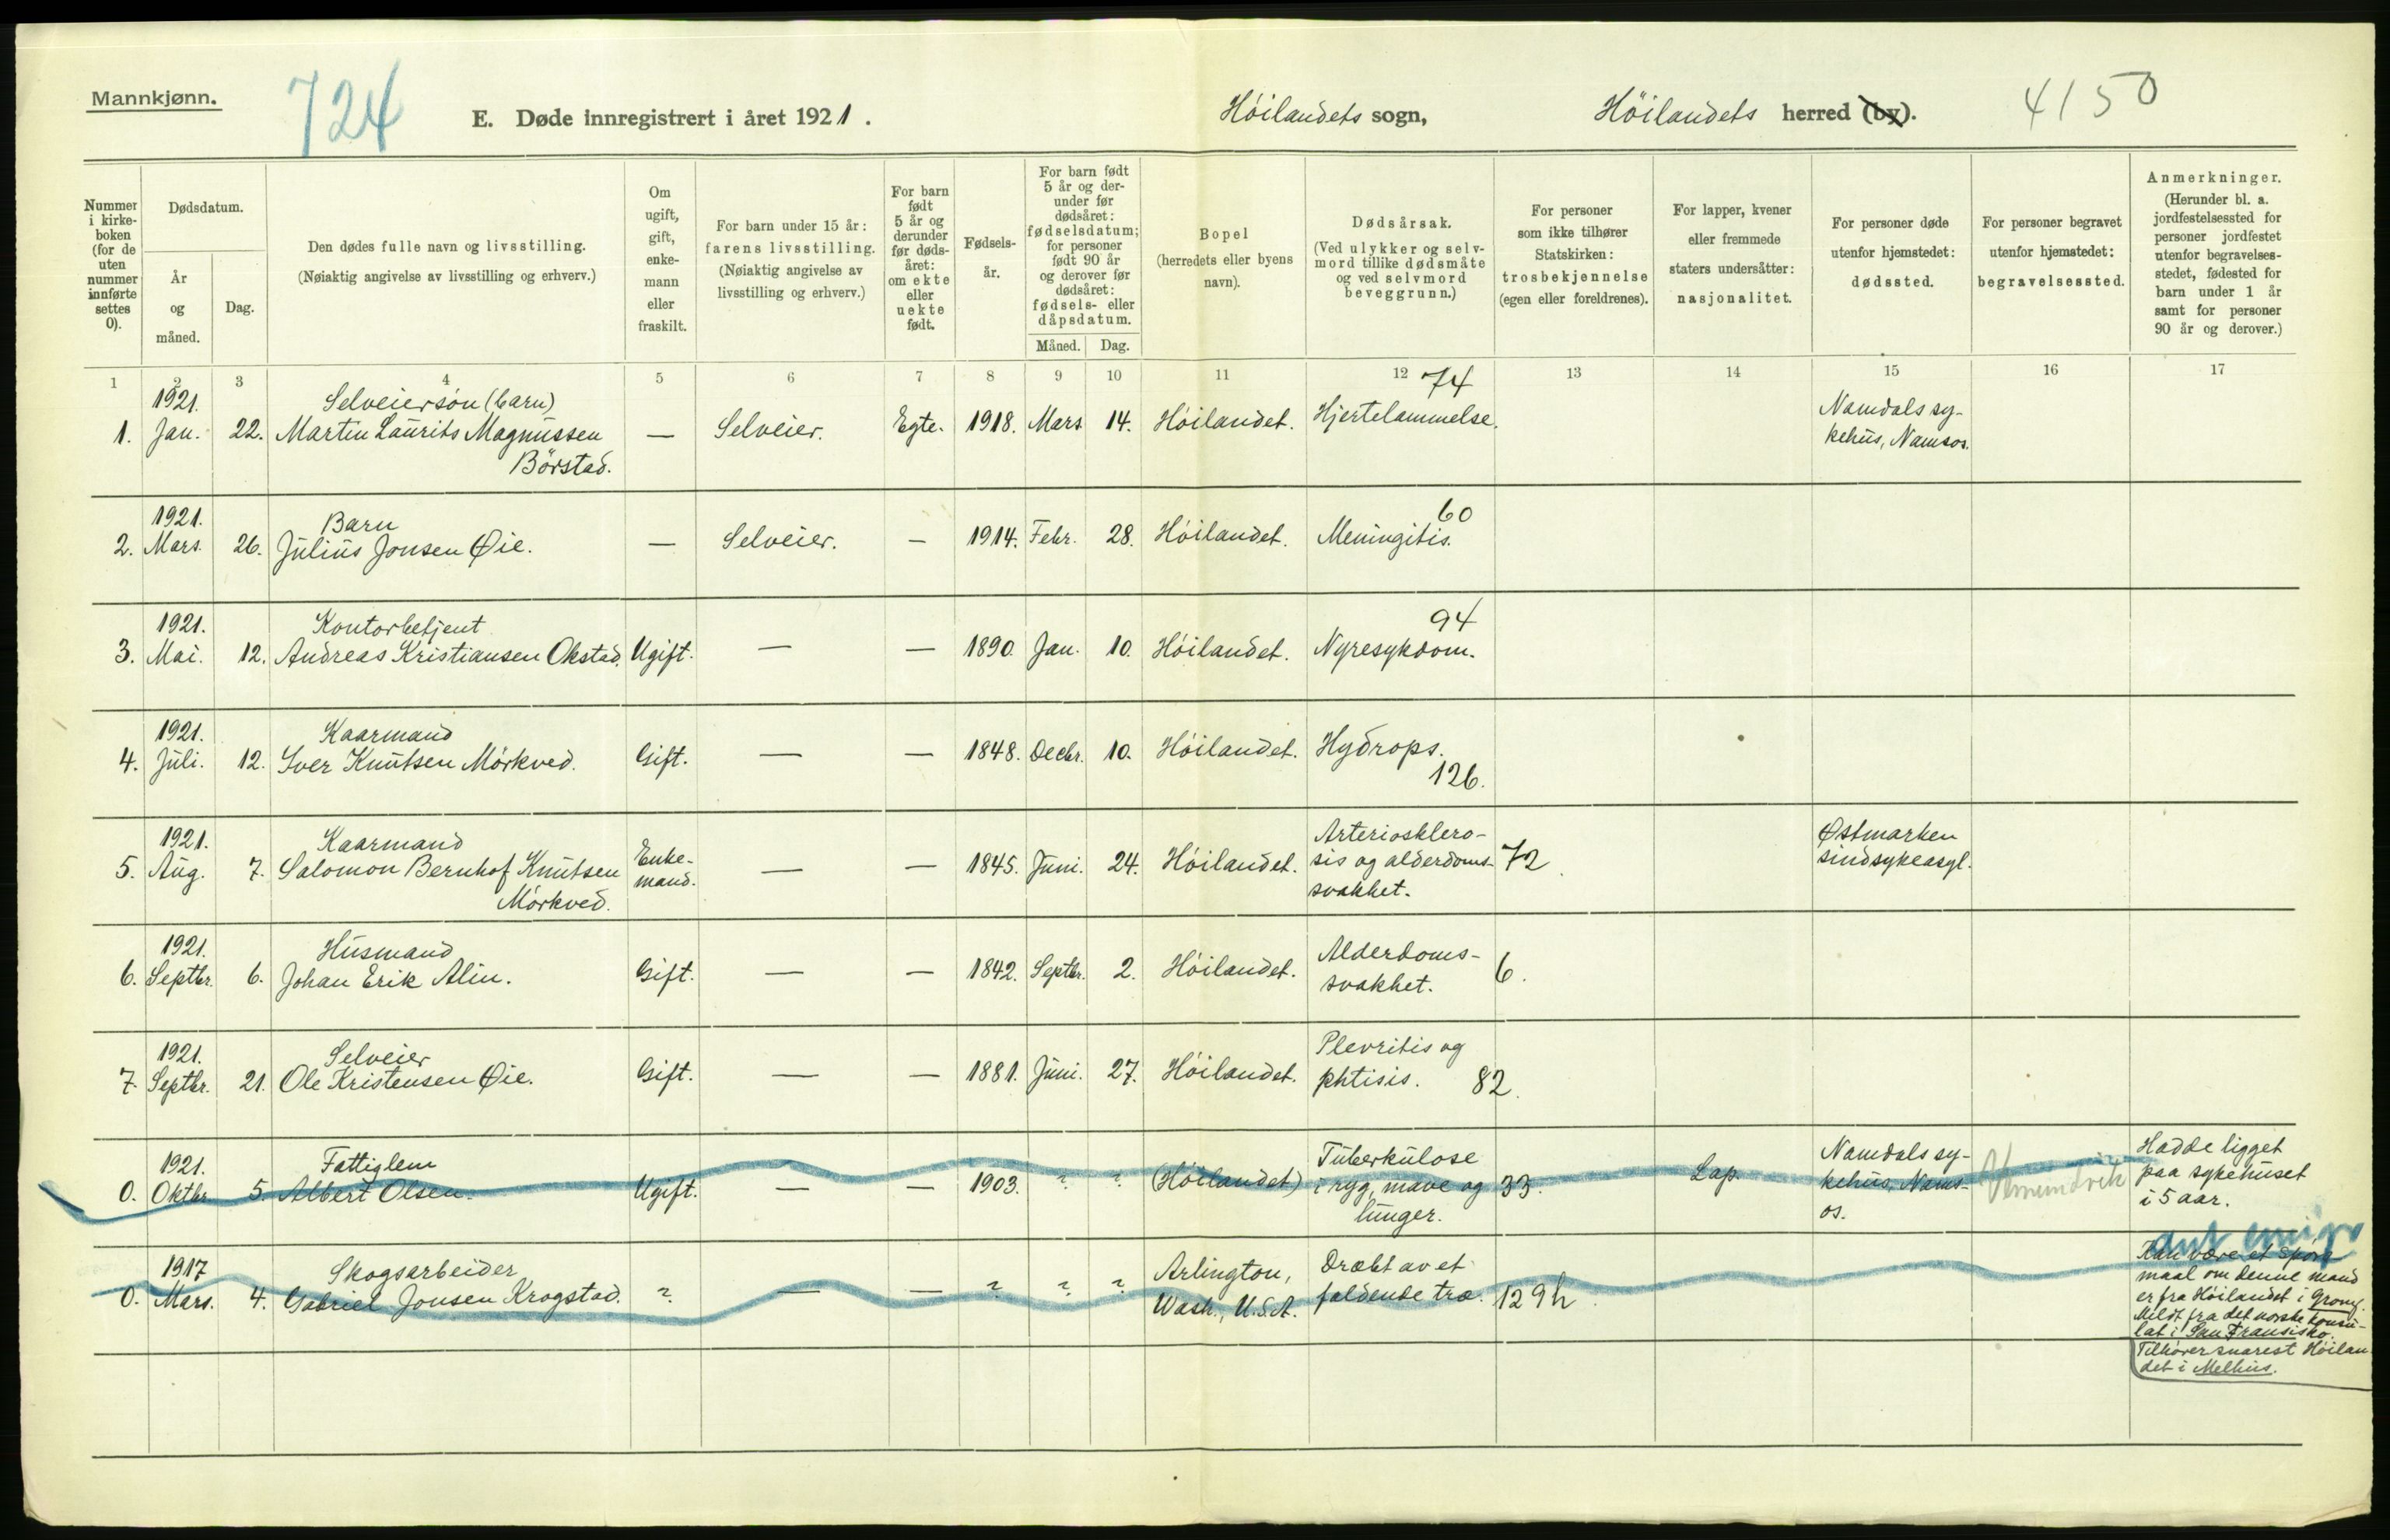 Mannkjønn.
724
E. Døde innregistrert i året 1921.
Höilandets sogn,
Höilandets herred (by).
4150
Nummer i kirke-boken (for de uten nummer innførte settes 0).
Dødsdatum.
År og måned.
Dag.
Den dødes fulle navn og livsstilling.
(Nøiaktig angivelse av livsstilling og erhverv.)
Om ugift, gift, enke-mann eller fraskilt.
For barn under 15 år: farens livsstilling.
(Nøiaktig angivelse av livsstilling og erhverv.)
For barn født 5 år og derunder før døds-året: om ekte eller uekte født.
Fødsels-år.
For barn født 5 år og der-under før dødsåret: fødselsdatum; for personer født 90 år og derover før dødsåret: fødsels- eller dåpsdatum.
Måned.
Dag.
Bopel
(herredets eller byens navn).
Dødsårsak.
(Ved ulykker og selv-mord tillike dødsmåte og ved selvmord beveggrunn.)
For personer som ikke tilhører Statskirken: trosbekjennelse (egen eller foreldrenes).
For lapper, kvener eller fremmede staters undersåtter: nasjonalitet.
For personer døde utenfor hjemstedet: dødssted.
For personer begravet utenfor hjemstedet: begravelsessted.
Anmerkninger.
(Herunder bl. a. jordfestelsessted for personer jordfestet utenfor begravelses-stedet, fødested for barn under 1 år samt for personer 90 år og derover.)
1 2 3 4 5 6 7 8 9 10 11 12 13 14 15 16 17
1921. Selveiersön (barn) 74 Namdals sy-
1. Jan. 22. Martin Laurits Magnussen — Selveier. Egte. 1918. Mars 14. Höilandet. Hjertelammelse. kehus, Namsos.
Börstad.
1921. Barn 60
2. Mars. 26. Julius Jonsen Øie. — Selveier. — 1914. Febr. 28. Höilandet. Meningitis.
1921. Kontorbetjent 94
3. Mai. 12. Andreas Kristiansen Okstad. Ugift. — — 1890. Jan. 10. Höilandet. Nyresykdom.
1921. Kaarmand
4. Juli. 12. Iver Knutsen Mörkved. Gift. — — 1848. Decbr. 10. Höilandet. Hydrops.
126.
1921. Kaarmand Arteriosklero- Østmarken
5. Aug. 7. Salomon Bernhof Knutsen Enke-mand. — — 1845. Juni. 24. Höilandet. sis og alderdoms- 72. sindsykeasyl.
Mörkved. svakhet.
1921. Husmand Alderdoms-
6. Septbr. 6. Johan Erik Alin. Gift. — — 1842. Septbr. 2. Höilandet. svakhet. 6.
1921. Selveier Plevritis og
7. Septbr. 21. Ole Kristensen Øie. Gift. — — 1881. Juni. 27. Höilandet. phtisis. 82.
1921. Fattiglem Tuberkulose Namdals sy- Hadde ligget
0. Oktbr. 5. Albert Olsen. Ugift. — — 1903. ? ? (Höilandet) i ryg, mave og 33. Lap. kehus, Nams- Vemundvik paa sykehuset
lunger. os. i 5 aar.
1917 Skogsarbeider Arlington, Dræbt av et
0. Mars. 4. Gabriel Jonsen Krogstad. ? — — ? ? ? Wash., U.S.A. faldende træ. 129h
Kan være et spörs-
maal om denne mand
er fra Höilandet i Grong.
Meldt fra det norske konsu-
lat i San Fransisko.
Tilhörer snarest Höilan-
det i Melhus.